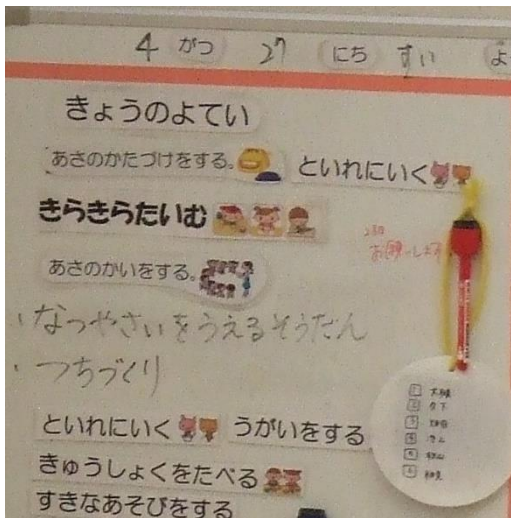 4 がつ 27 にち すい よ
きょうのよてい
あさのかたづけをする。 といれにいく
きらきらたいむ
お願いします
あさのかいをする。
・なつやさいをうえるそうだん
・つちづくり
といれにいく うがいをする
きゅうしょくをたべる
すきなあそびをする